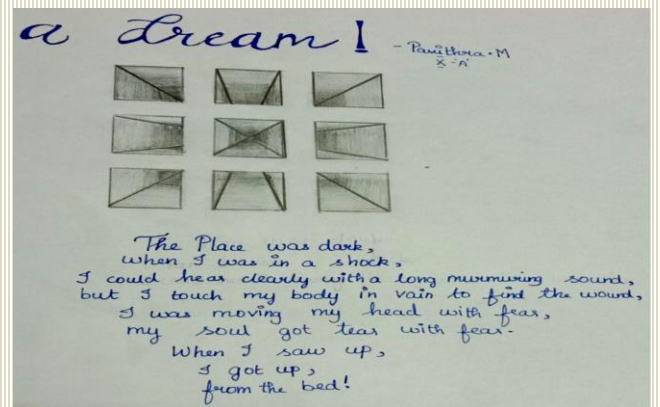 a dream!
- Pavithra.M
X-'A'
The Place was dark,
when I was in a shock,
I could hear clearly with a long murmuring sound,
but I touch my body in vain to find the wound,
I was moving my head with fear,
my soul got tear with fear.
When I saw up,
I got up,
from the bed!